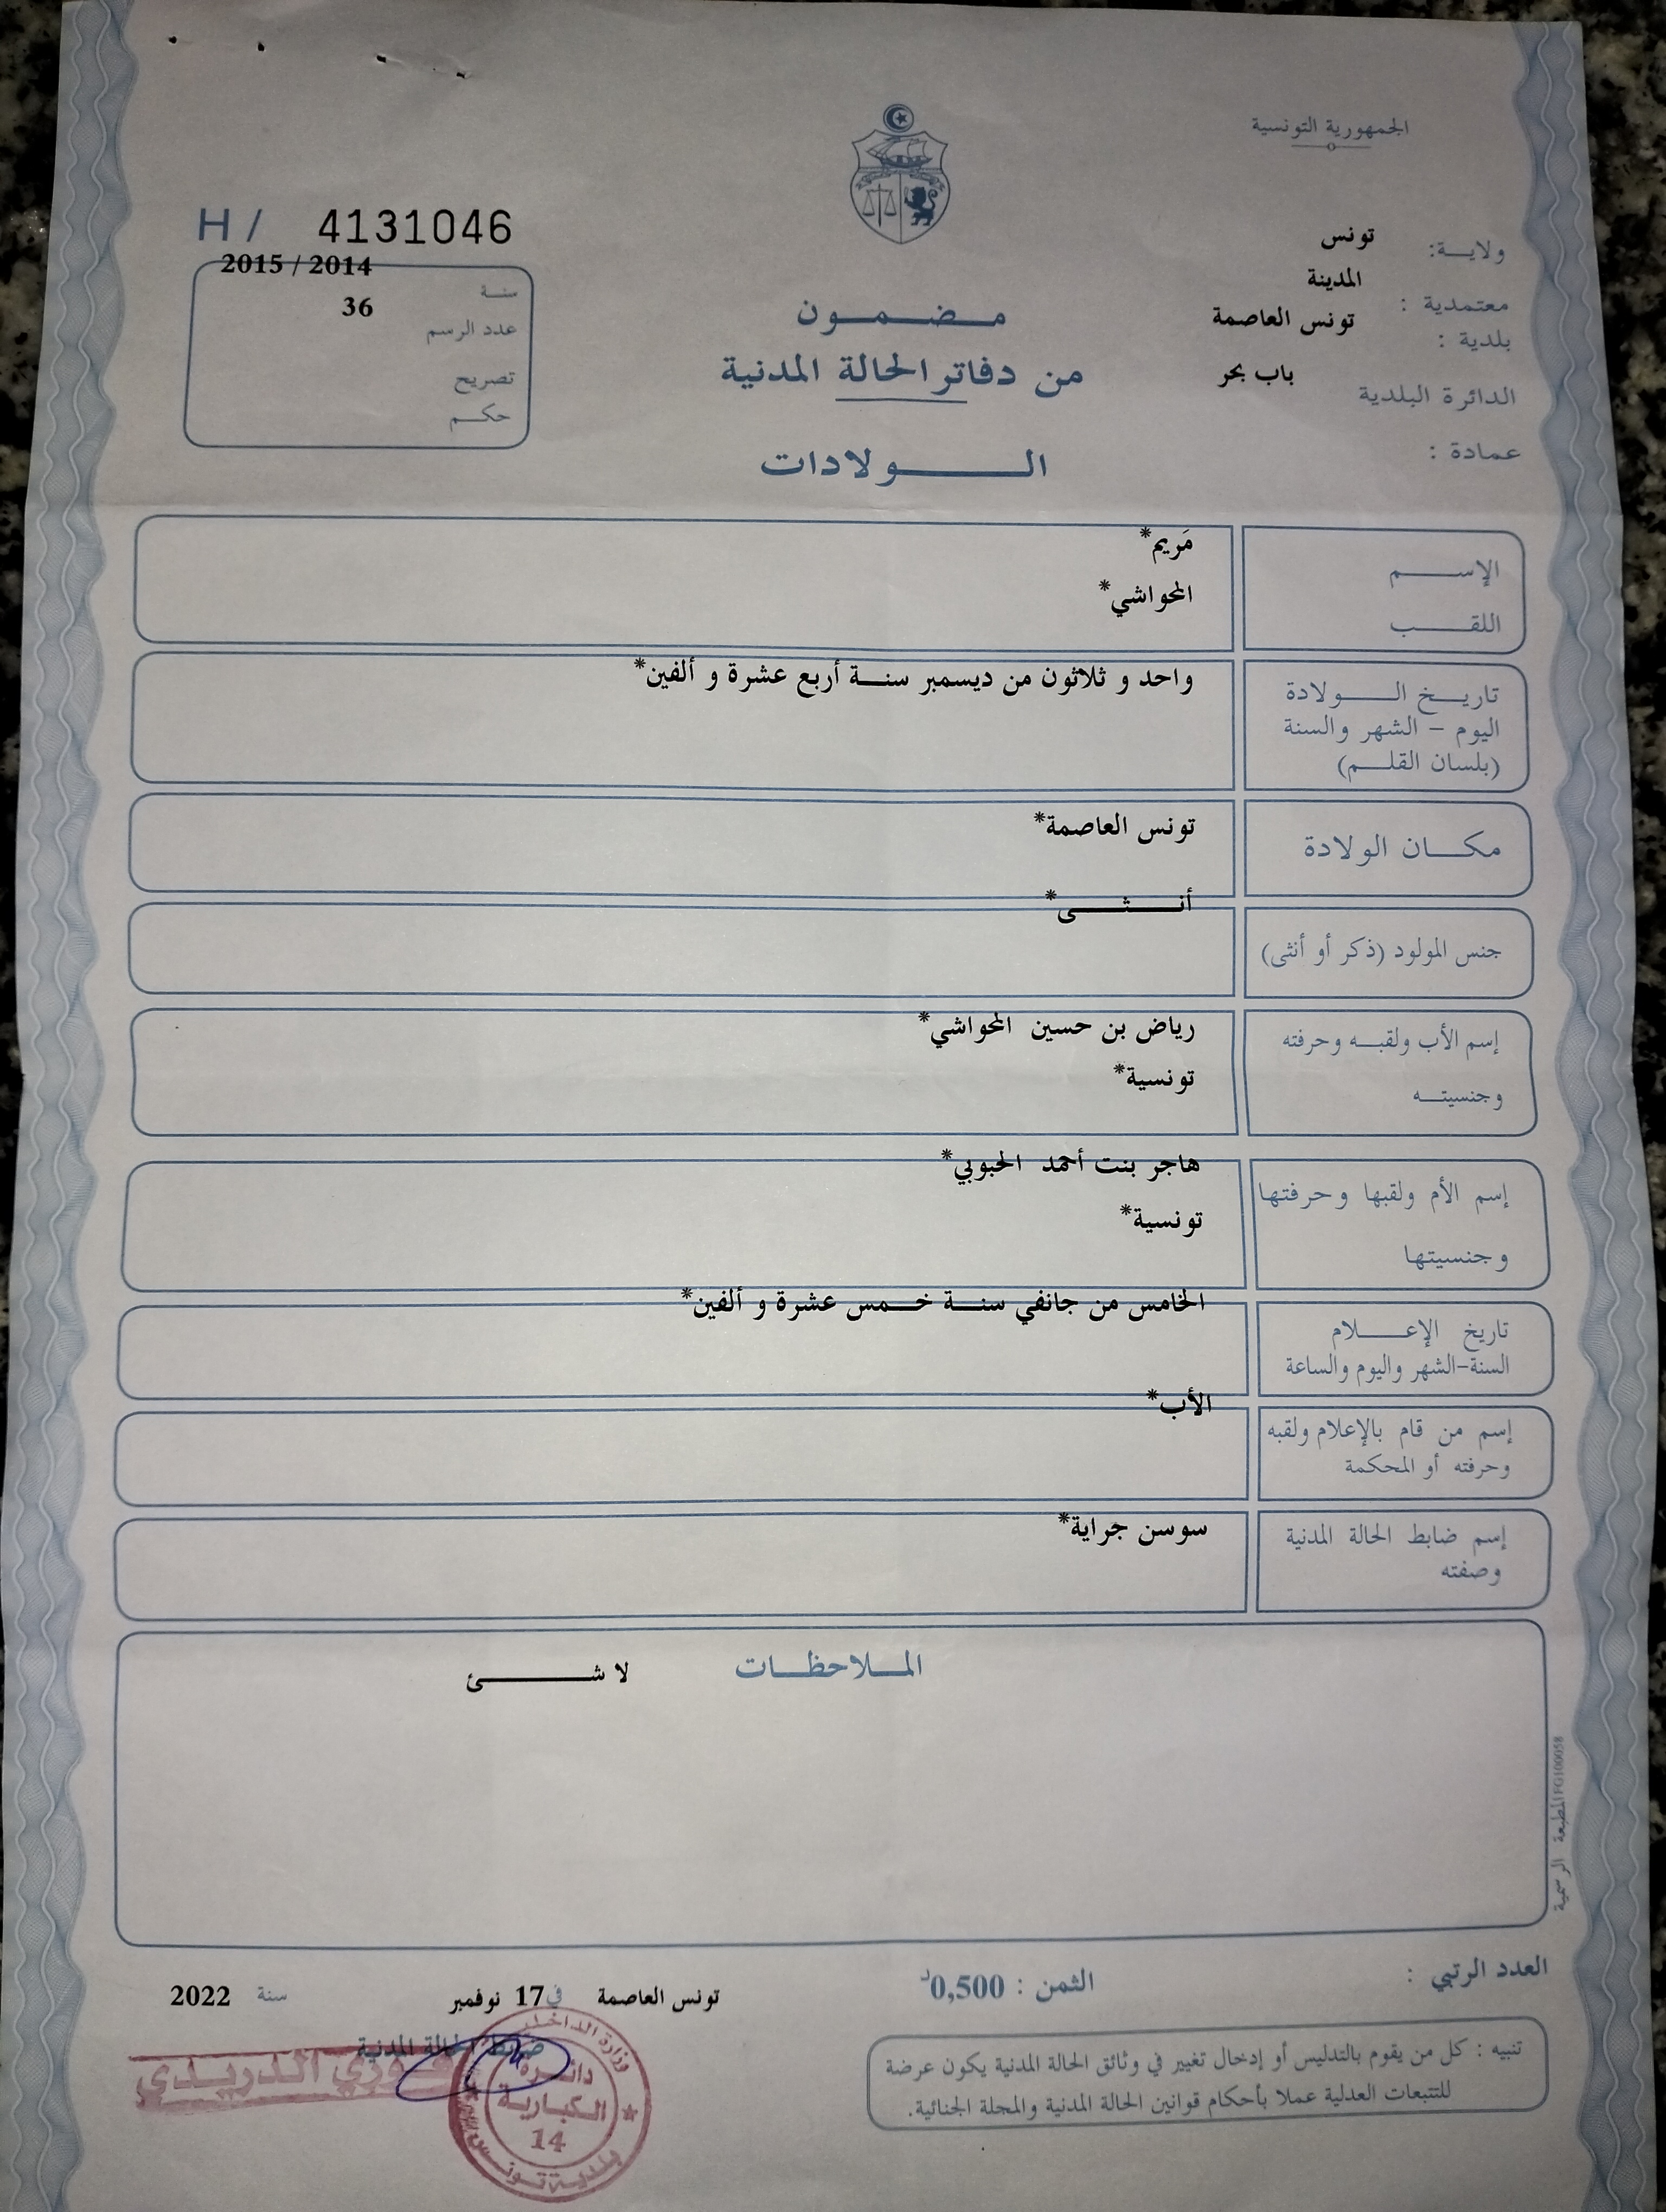 الجمهورية التونسية
ولايـــة: تونس
معتمدية : المدينة
بلدية : تونس العاصمة
الدائرة البلدية باب بحر
عمادة :
H / 4131046
2015 / 2014
سنة
36
عدد الرسم
تصريح
حكم
مضمون
من دفاتر الحالة المدنية
الولادات
الإسم مَريم*
اللقب المحواشي*
تاريخ الولادة واحد و ثلاثون من ديسمبر سنة أربع عشرة و ألفين*
اليوم – الشهر والسنة
(بلسان القلم)
مكان الولادة تونس العاصمة*
جنس المولود (ذكر أو أنثى) أنثى*
إسم الأب ولقبه وحرفته رياض بن حسين المحواشي*
وجنسيته تونسية*
إسم الأم ولقبها وحرفتها هاجر بنت أحمد الحبوبي*
وجنسيتها تونسية*
تاريخ الإعلام الخامس من جانفي سنة خمس عشرة و ألفين*
السنة-الشهر واليوم والساعة
إسم من قام بالإعلام ولقبه الأب*
وحرفته أو المحكمة
إسم ضابط الحالة المدنية سوسن جراية*
وصفته
الملاحظات لا شئ
المطبعة الرسمية FG100058
العدد الرتبي :
الثمن : 0,500د
تونس العاصمة في 17 نوفمبر سنة 2022
ضابط الحالة المدنية
فوزي الدريدي
وزارة الداخلية
دائرة
الكبارية
14
بلدية تونس
تنبيه : كل من يقوم بالتدليس أو إدخال تغيير في وثائق الحالة المدنية يكون عرضة
للتتبعات العدلية عملا بأحكام قوانين الحالة المدنية والمجلة الجنائية.